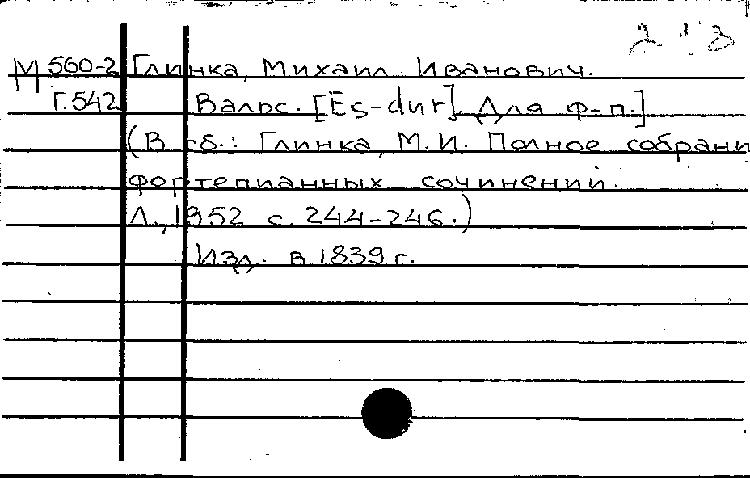 М 560-2 Глинка, Михаил Иванович.
Г.542 Вальс. [Es-dur]. Для ф-п.]
(В сб.: Глинка, М.И. Полное собрани
фортепианных сочинений.
Л., 1952 с. 244-246.)
Изд. в 1839 г.